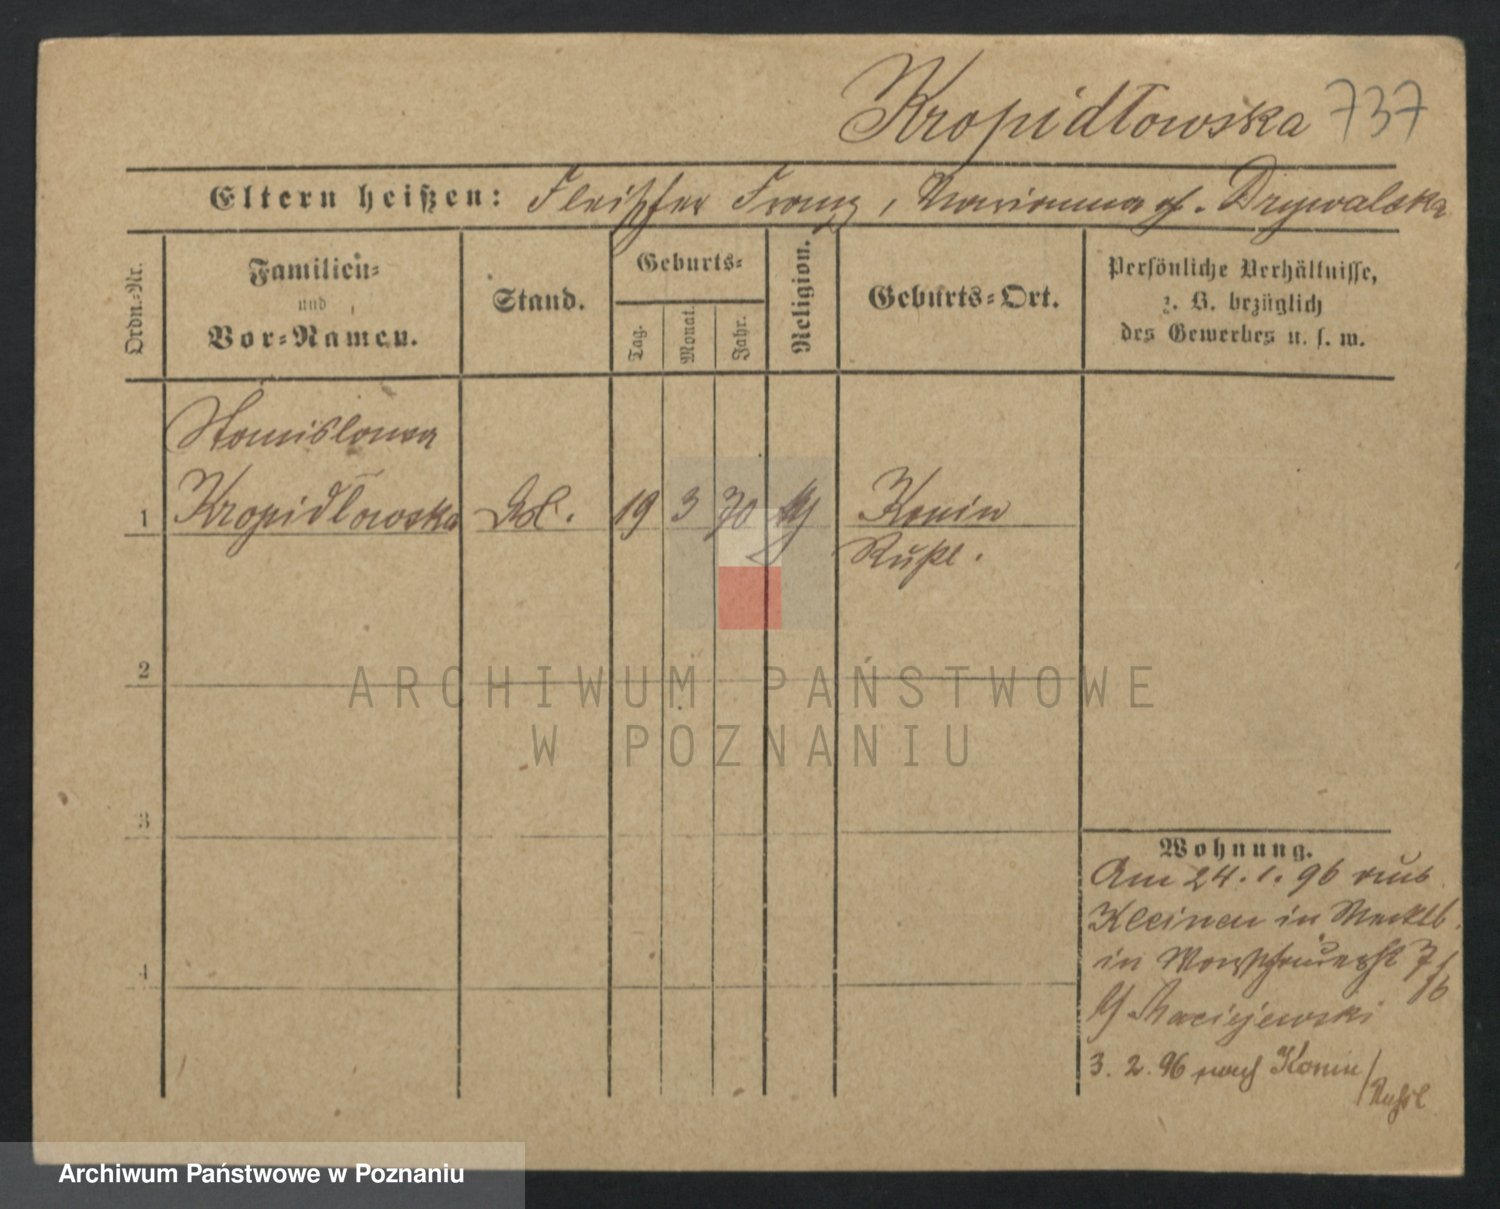 Kropidłowska 737
Eltern heißen: Fleischer Franz, Marianna g. Drywalska
Ordn.-Nr.
Familien-
und
Vor-Namen.
Stand.
Geburts-
Tag.
Monat.
Jahr.
Religion.
Geburts-Ort.
Persönliche Verhältnisse,
z. B. bezüglich
des Gewerbes u. s. w.
Stanislawa
1 Kropidlowska 19 3 70 Konin
Rußl.
2
3
4
Wohnung.
Am 24.1.96 aus
Kleinen in Mecklb.
in
Maciejewski
3. 2. 96 nach Konin/
Rußl
ARCHIWUM PAŃSTWOWE
W POZNANIU
Archiwum Państwowe w Poznaniu